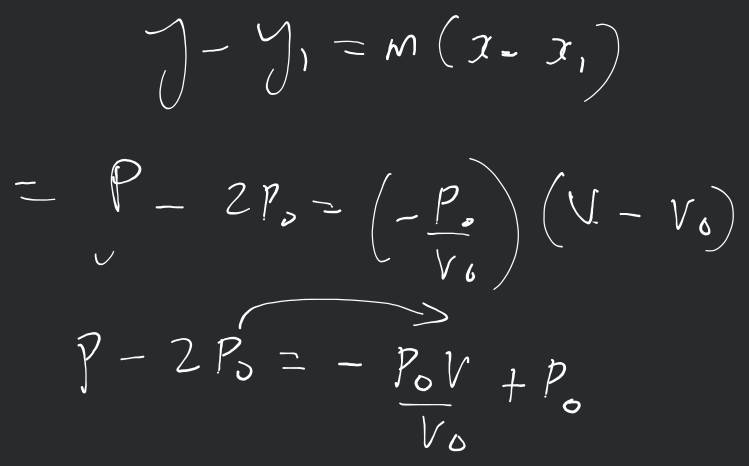 y - y₁ = m(x - x₁)
= P - 2P₀ = (-P₀/V₀)(V - V₀)
P - 2P₀ = - P₀V/V₀ + P₀